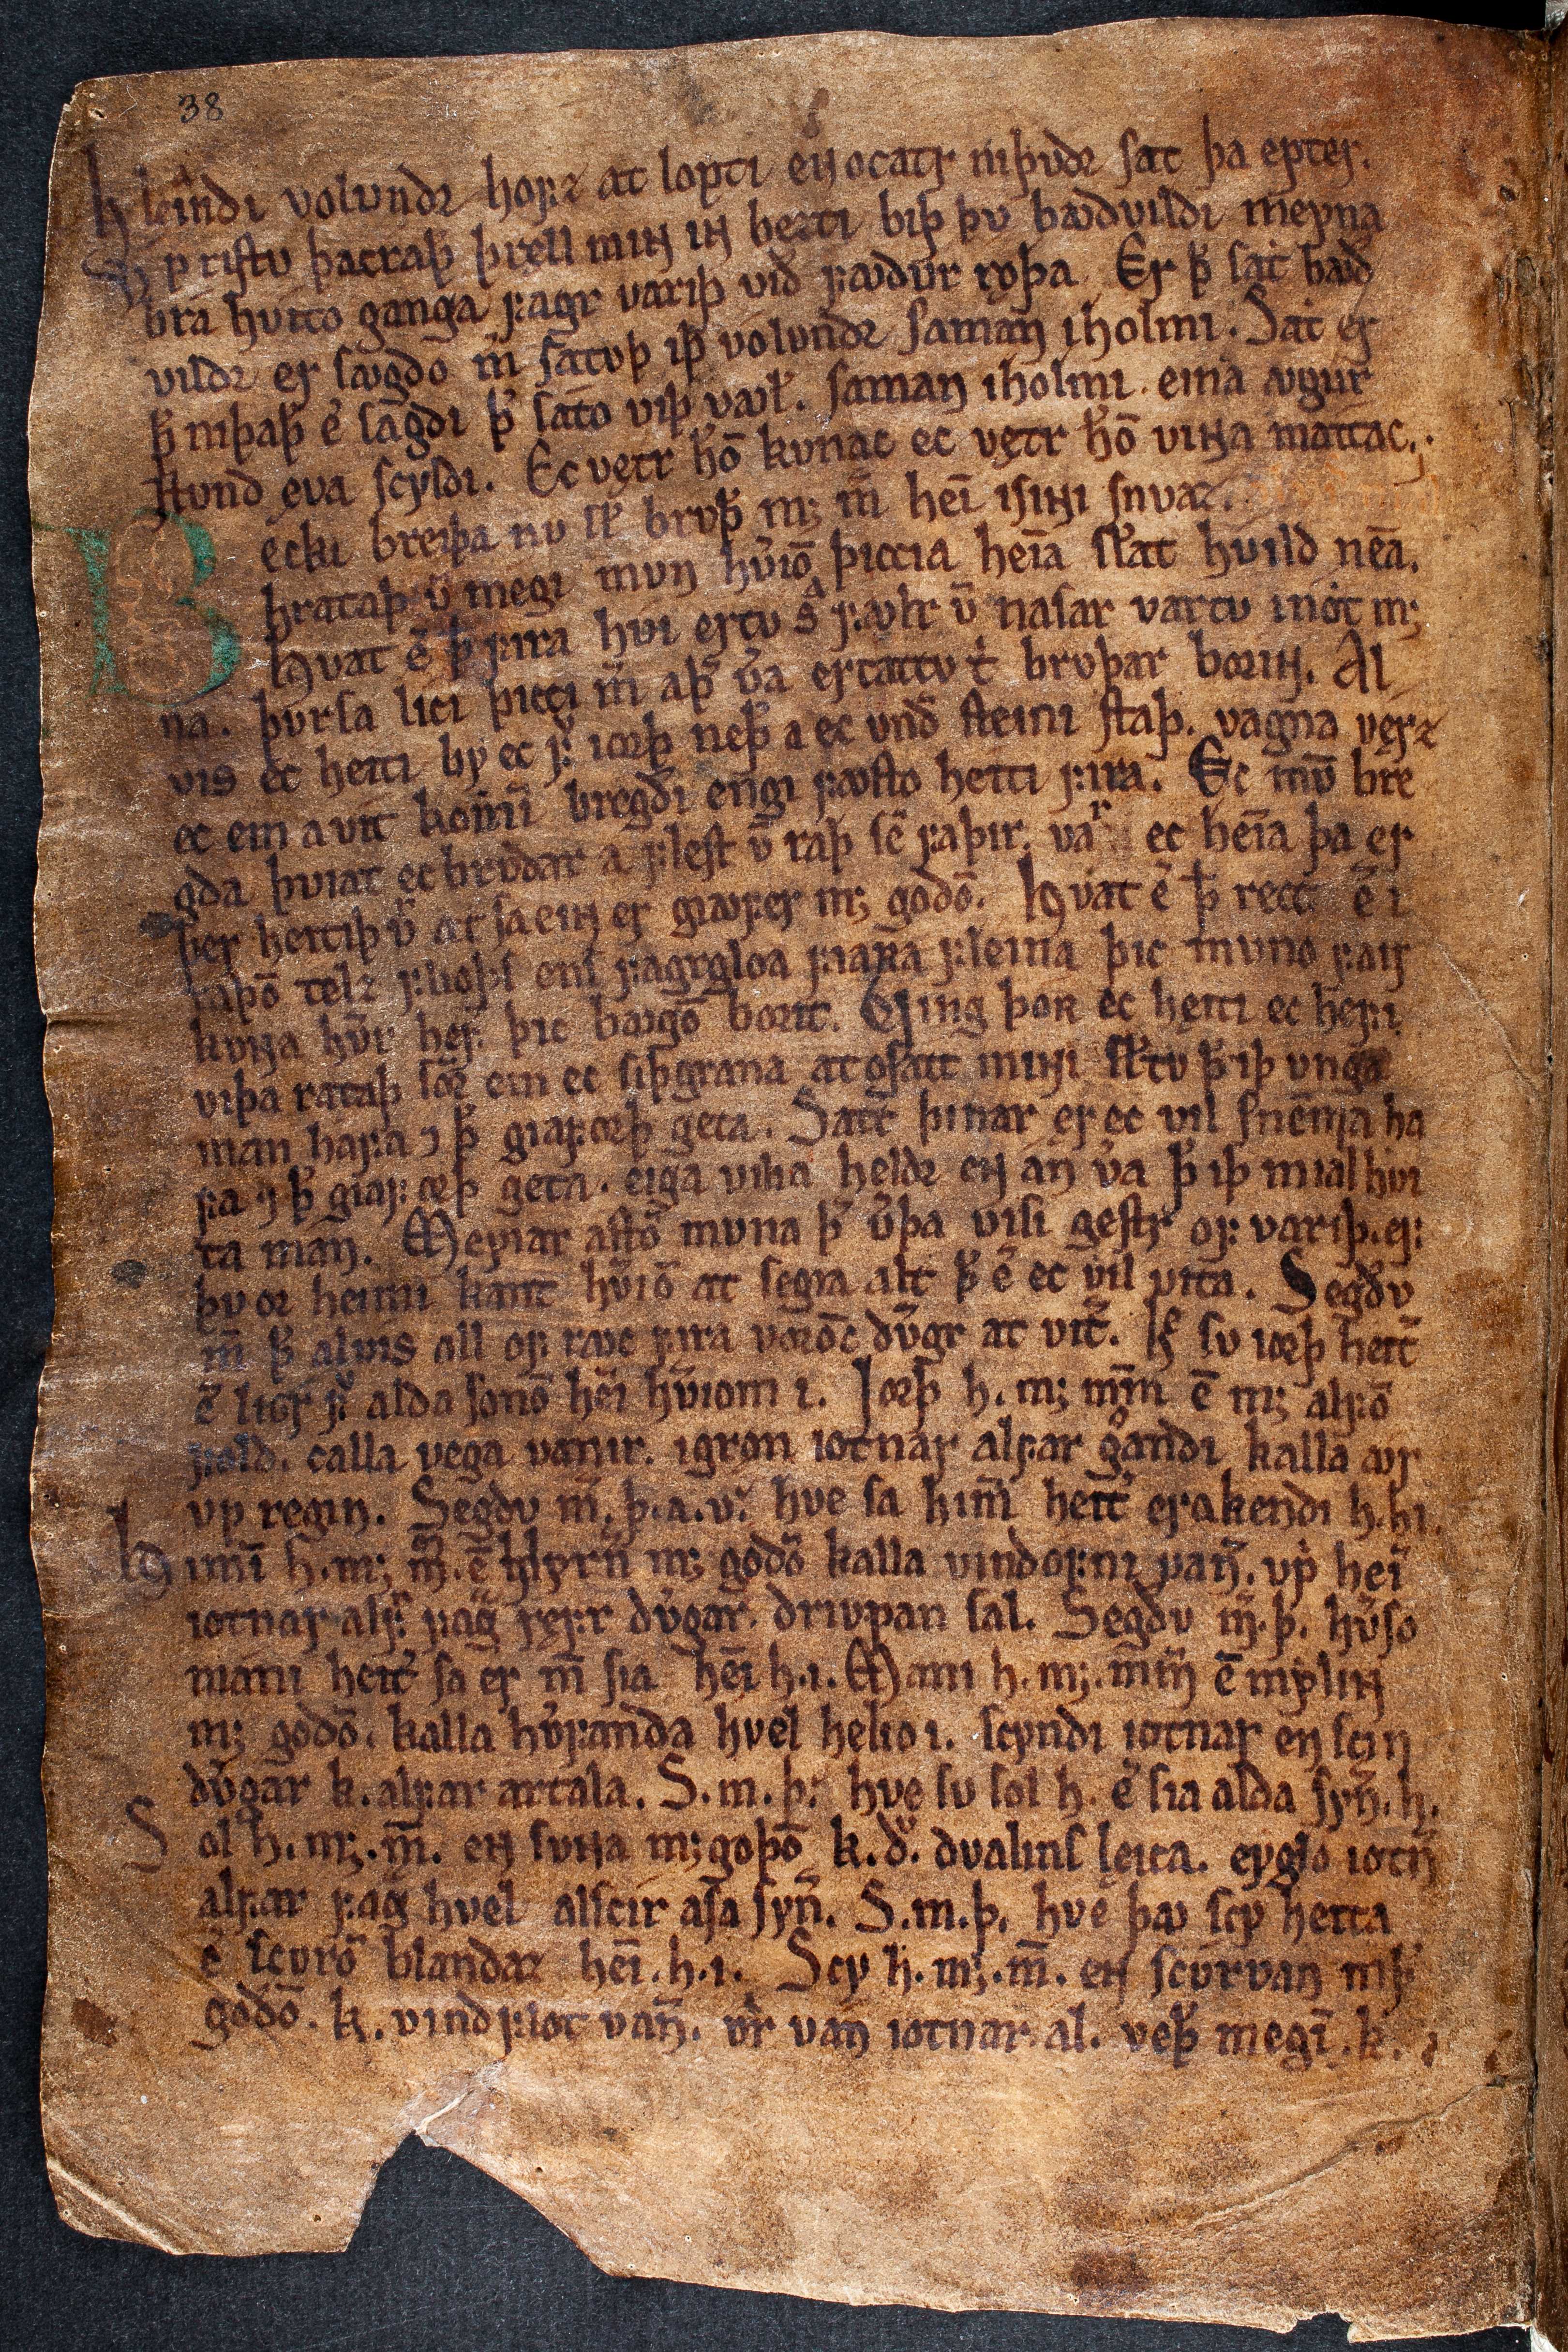 38
hlęiandi volundr hofz at lopti eɴ ocatr niþvdr sat þa epter.
Vp ristv þacraþ þręll miɴ iɴ bezti biþ þv bꜹdvildi meyna
bra hvito ganga fagr variþ vid fꜹdur rǫþa. Er þ̄ sat bꜹd
vildr er sꜹgdo m̄ satvþ iþ volundr saman iholmi. Sat er
þ̄ niþaþ e͛ sagdi þ̄ sato viþ vꜹl͛. saman iholmi. eina ꜹgur
stund ęva scyldi. Ec vętr hō kvnac ec vętr hō viɴa mattac.
Becki breiþa nv sl̄ brvþ mꝫ m̄ heī isiɴi snvaz.
hrataþ v̄ męgi mvn hv͛iō þiccia heīa sl̄at hvild nēa.
Hvat ē þ̄ fira hvi ertv sᵃ fꜹlr v̄ nasar vartv inótt mꝫ
na. þvrsa lici þicci m̄ aþ̄ v͛a ertattv t̍ brvþar boriɴ. Al
vis ec heiti by ec f͛ iorþ neþ̄ a ec vnd̄ steini staþ. vagna vęrz
ec em avit komiɴ bregdi engi fꜹsto heiti fira. Ec mv̄ bre
gda þviat ec brvdar a flest v̄ raþ sē faþir. vaʳ ec heīa þa er
þer heitiþ v͛ at sa eiɴ er giꜹfer mꝫ godō. Hvat ē þ̄ recc ē i
raþō telz flioþs enſ fagrgloa fiaʀa fleina þic mvno fair
kvɴa hv͛r hef͛ þic bꜹgō borit. Ving þoʀ ec hęiti ec hef i
viþa rataþ s̄oʀ em ec siþgrana at osatt miɴi sl̄tv þ̄ iþ vnga
man hafa ⁊ þ̄ giaforþ geta. Satt̄ þinar er ec vil snēma ha
fa ⁊ þ̄ giaf orþ geta. eiga vilia heldr eɴ an v͛a þ̄ iþ miallhvi
ta man. Meyiar astō mvna þ̄ v͛þa visi gestr of variþ. ef
þv or heimi kant hv͛iō at segia alt þ̄ ē ec vil vita. Segdv
m̄ þ̄ alvis ꜹll of rꜹc fira vorōc dv͛gr at vit͛. hv͛ sv iorþ heit͛
ē ligr f͛ alda sonō hēi hv͛iom i. Iorþ h. mꝫ mm̄ ē mꝫ alfō
fold. calla vega vanir. igrǫn iotnar alfar gᵒandi kalla ꜹr
vp regin. Segdv m̄. þ. a. v͛. hve sa him̄ heit͛ erakendi h. hi.
Himī h. mꝫ m̄. ē hlyrn̄ mꝫ godō kalla vindofni van̄. vp̍ hei͛
iotnar alf͛ fag͛ ręfr dv͛gar. drivpan sal. Segdv m̄. þ. hv͛so
mani heit͛ sa er m̄ sia hēi h. i. Mani h. mꝫ. mm̄ ē mylin
mꝫ godō. kalla hv͛fanda hvel helio i. scyndi iotnar en scin
dv͛gar k. alfar artala. S. m. þ. hve sv sol h. e͛ sia alda syn͛. h.
Sol h. mꝫ. m̄. eɴ sunna mꝫ goþō k. d͛. dvalins lęica. eyglo iotn̄
alfar fag͛ hvel alscir asa syn̄. S. m. þ. hve þꜹ scy heita
e͛ scvrō blandaz hēi. h. i. Scy h. mꝫ. m̄. eɴ scvrvan mþ̄
godō. k. vindflot van̄. vr͛ van iotnar al. veþ̄ megī. k.